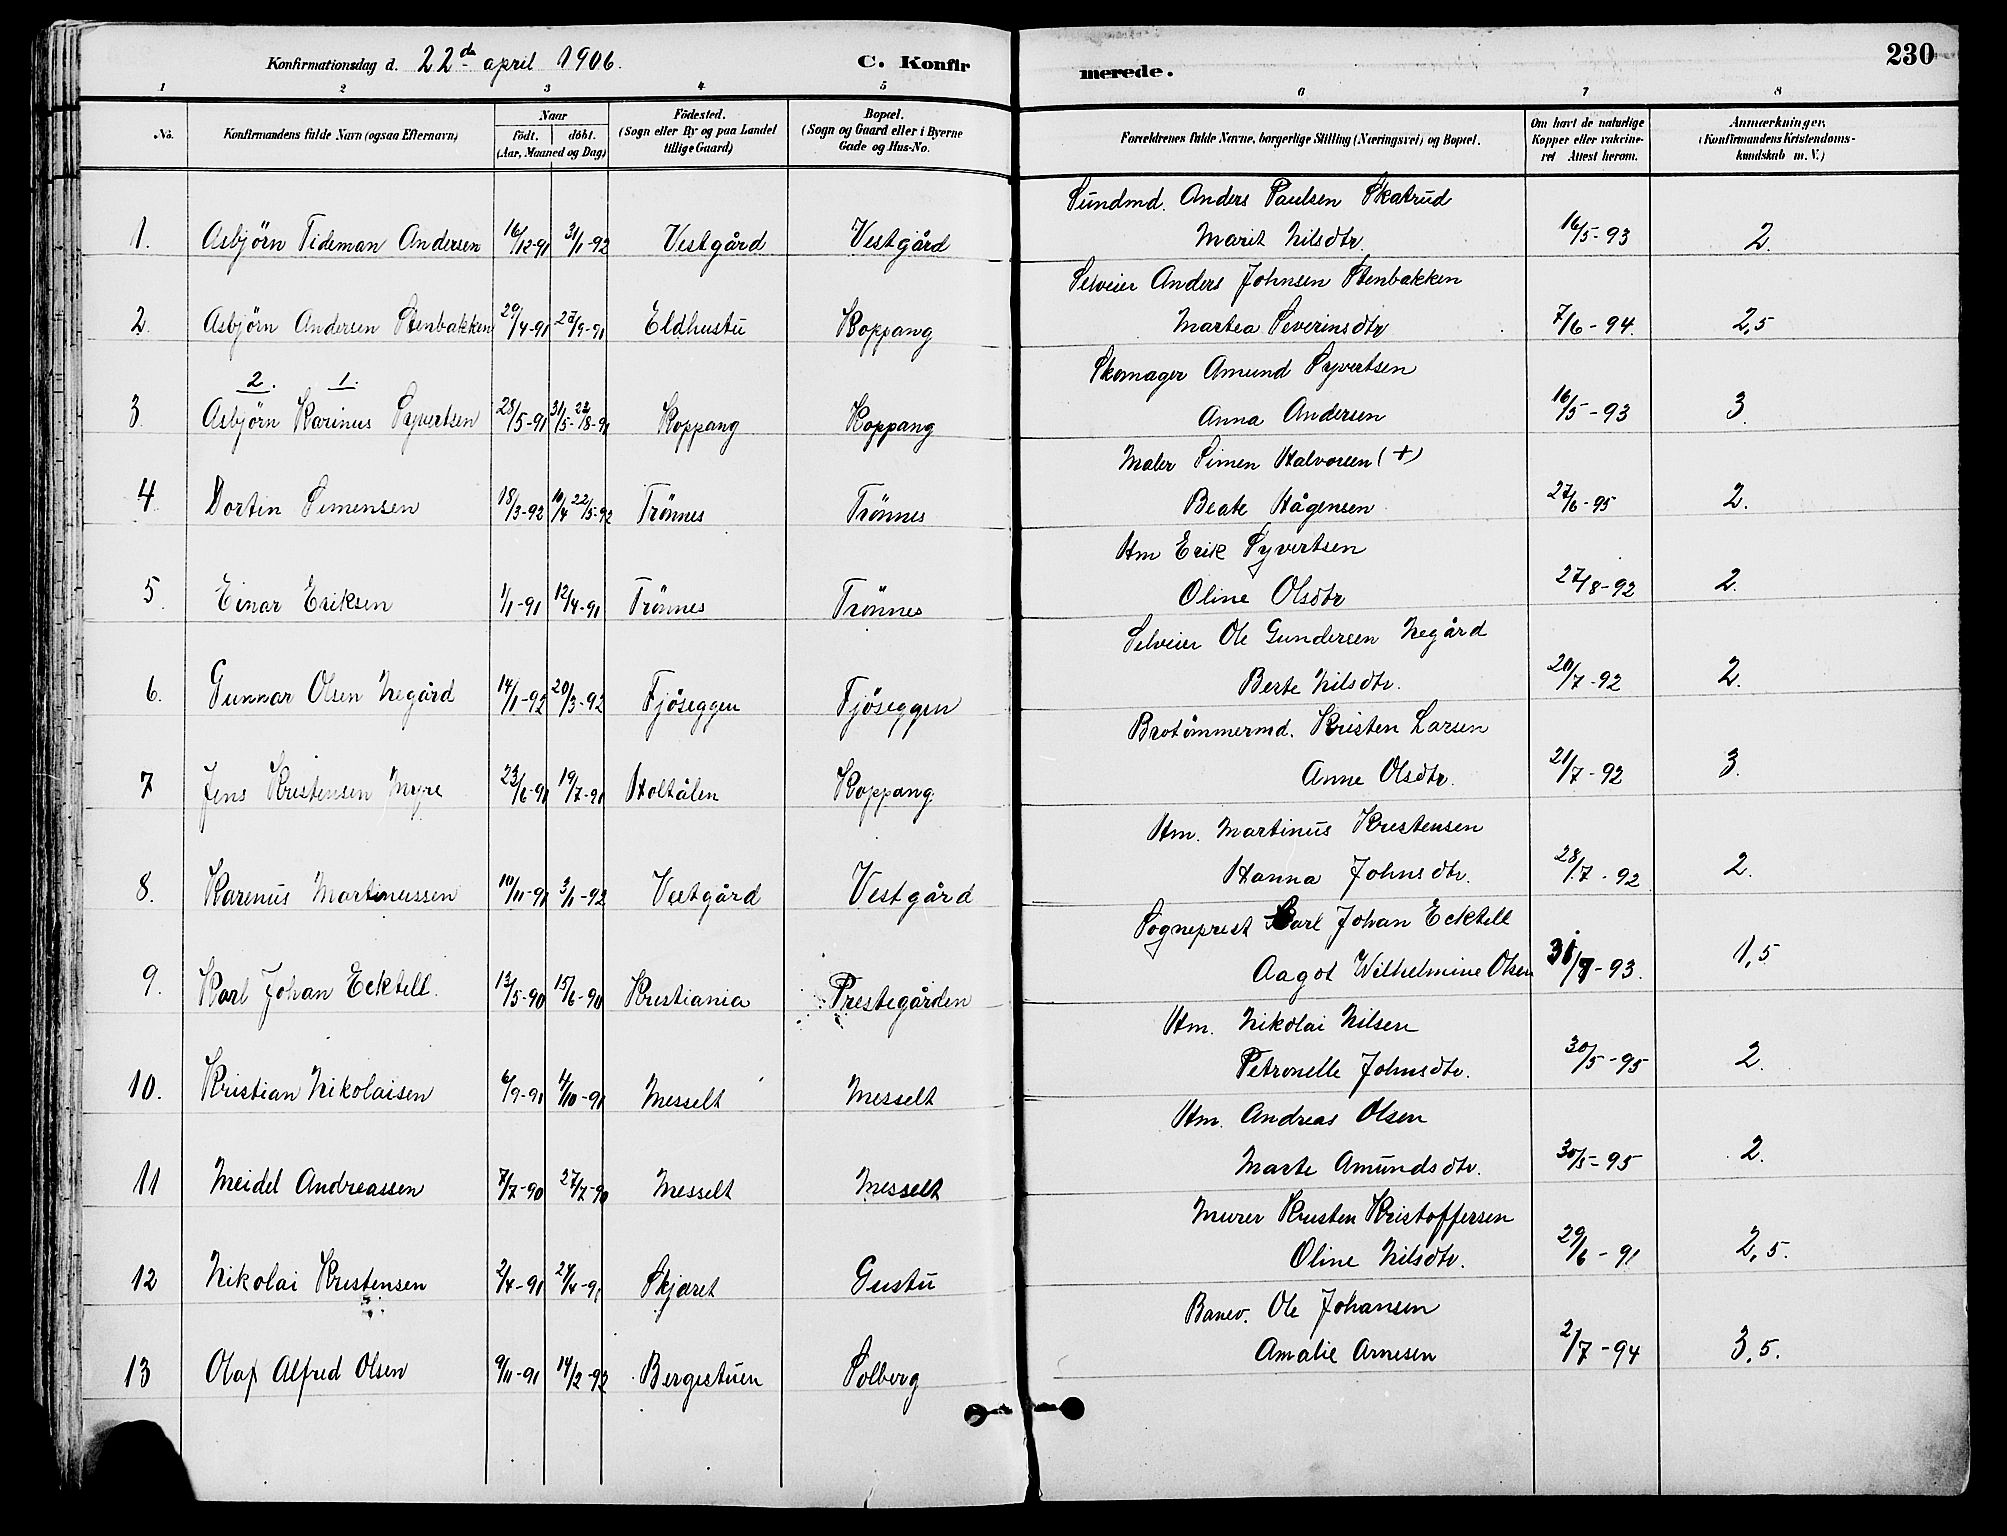 230
Konfirmationsdag d. 22de april 1906.
C. Konfirmerede.
1 2 3 4 5 6 7 8
No.
Konfirmandens fulde Navn (ogsaa Efternavn)
Naar
födt. döbt.
(Aar, Maaned og Dag)
Födested.
(Sogn eller By og paa Landet
tillige Gaard)
Bopæl.
(Sogn og Gaard eller i Byerne
Gade og Hus-No.
Forældrenes fulde Navne, borgerlige Stilling (Næringsvei) og Bopæl.
Om havt de naturlige
Kopper eller vakcine-
ret Attest herom.
Anmærkninger.
(Konfirmandens Kristendoms-
kundskab m. V.)
Sundmd. Anders Paulsen Skatrud
1. Asbjörn Tideman Andersen 16/12-91 31/1-92 Vestgård Vestgård Marit Nilsdtr. 16/5-93 2.
Selveier Anders Johnsen Stenbakken
2. Asbjörn Andersen Stenbakken 29/4-91 27/9-91 Eldhustu Koppang Martea Severinsdtr 7/6-94. 2,5
2. 1.
Skomager Amund Syvertsen
3. Asbjörn Karinus Syvertsen 28/5-91 31/5-23/8-91 Koppang Koppang Anna Andersen 16/5-93 3.
Maler Simen Halvorsen (+)
4 Dortin Simensen 18/3-92 10/4 22/5-92 Trönnes Trönnes Beate Hågensen 27/6-95 2.
Hm Erik Syvertsen
5. Einar Eriksen 1/1-91 12/4-91 Trönnes Trönnes Oline Olsdtr 27/8-92 2.
Selveier Ole Gundersen Negård
6. Gunnar Olsen Negård 14/1-92 20/3-92 Fjöseggen Fjöseggen Berte Nilsdtr. 20/7-92 2.
Brotömmermd. Kristen Larsen
7 Jens Kristensen Myre 23/6-91 19/7-91 Holtålen Koppang Anne Olsdtr. 21/7-92 3.
Hm. Martinus Kristensen
8. Karenus Martinussen 10/11-91 3/1-92 Vestgård Vestgård Hanna Johnsdtr. 28/7-92 2.
Sogneprest Carl Johan Ecktell
9. Karl Johan Ecktell. 13/5-90 15/6-90 Kristiania Prestegården Aagot Wilhelmine Olsen 31/7-93. 1,5
Hm. Nikolai Nilsen
10. Kristian Nikolaisen 6/9-91 4/10-91 Messelt Messelt Petronelle Johnsdtr. 30/5-95 2.
Hm. Andreas Olsen
11 Meidel Andreassen 7/7-90 27/7-90 Messelt Messelt Marte Amundsdtr. 30/5-95 2.
Murer Kristen Kristoffersen
12 Nikolai Kristensen 2/4-91 24/4-91 Skjæret Gustu Oline Nilsdtr. 29/6-91 2,5.
Banev. Ole Johansen
13 Olaf Alfred Olsen 9/11-91 14/2-92 Bergestuen Solberg Amalie Arnesen 2/7-94 3,5.